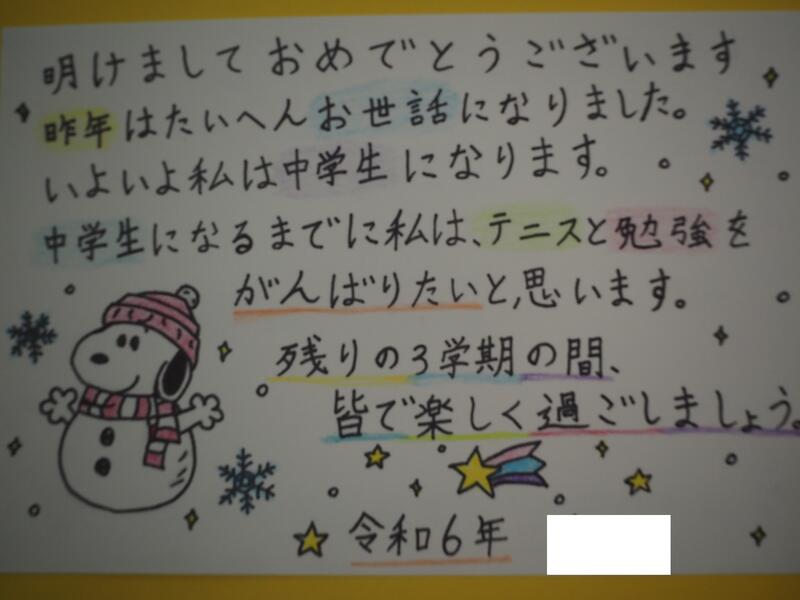 明けましておめでとうございます
昨年はたいへんお世話になりました。
いよいよ私は中学生になります。
中学生になるまでに私は、テニスと勉強を
がんばりたいと思います。
残りの3学期の間、
皆で楽しく過ごしましょう。
令和6年